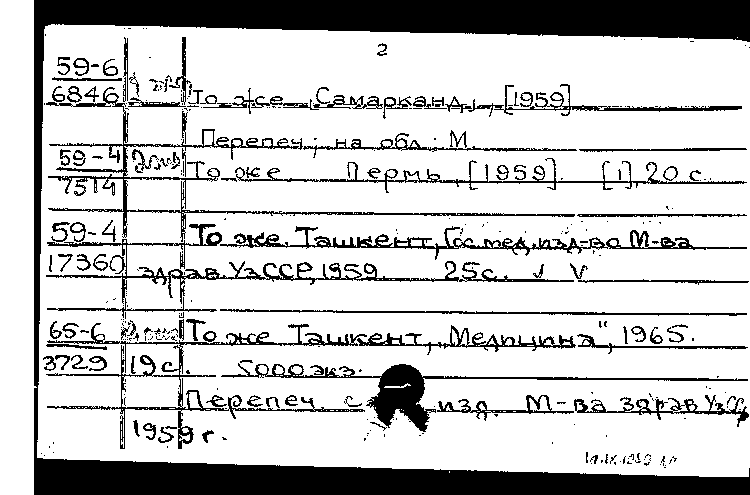 2
59-6
6846 То же Самарканд, [1959]
Перепеч; на обл: М.
59-4 То же Пермь, [1959]. [1], 20 с.
7514
59-4 То же. Ташкент, Гос. мед. изд-во М-ва
17360 здрав. УзССР, 1959. 25 с. √ V
65-6 То же Ташкент, „Медицина", 1965.
3729 19 с. 5000 экз.
Перепеч. с изд. М-ва здрав УзССР
1959 г.